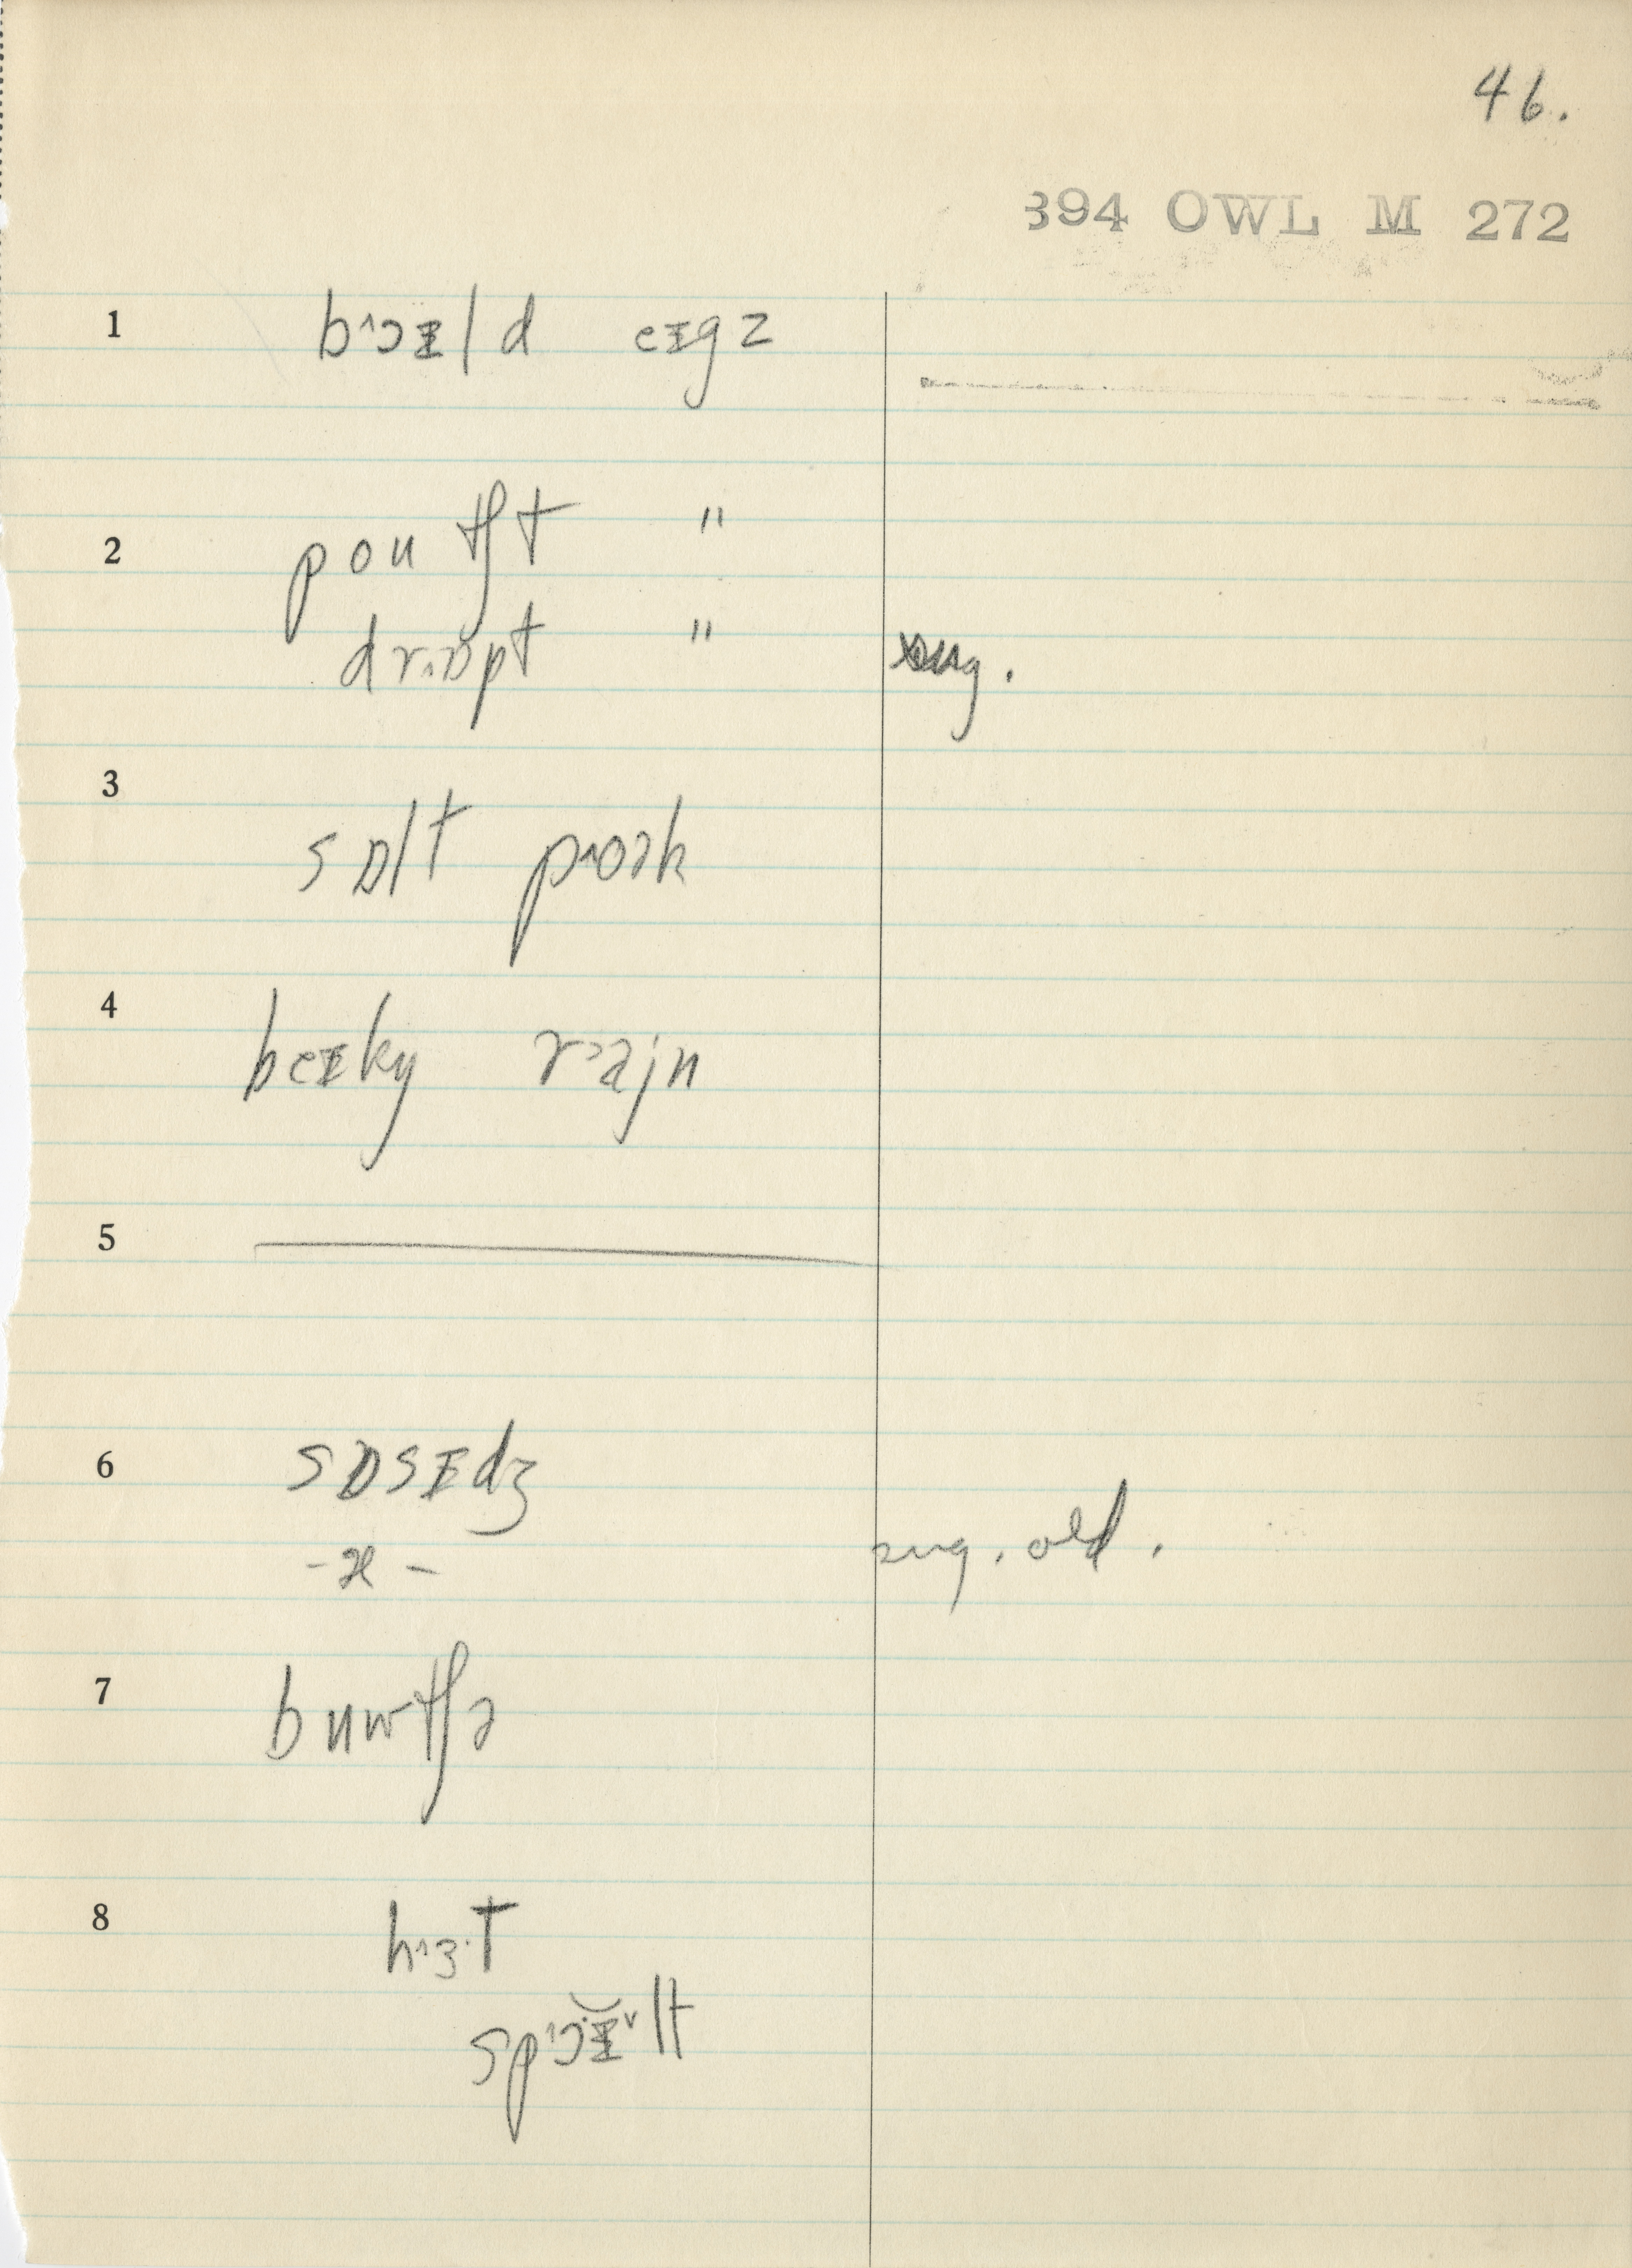 46.
394 OWL M 272
1 b˄ɔɪld eɪgz
2 poutʃt "
drɒpt " sug.
3 sɒlt p˄oək
4 beɪkn r˃ajn
5
6 sɒsɪdʒ
-æ- sug. old.
7 buwtʃə
8 h˄ɜ·t
sp˄ɔɪ˅lt